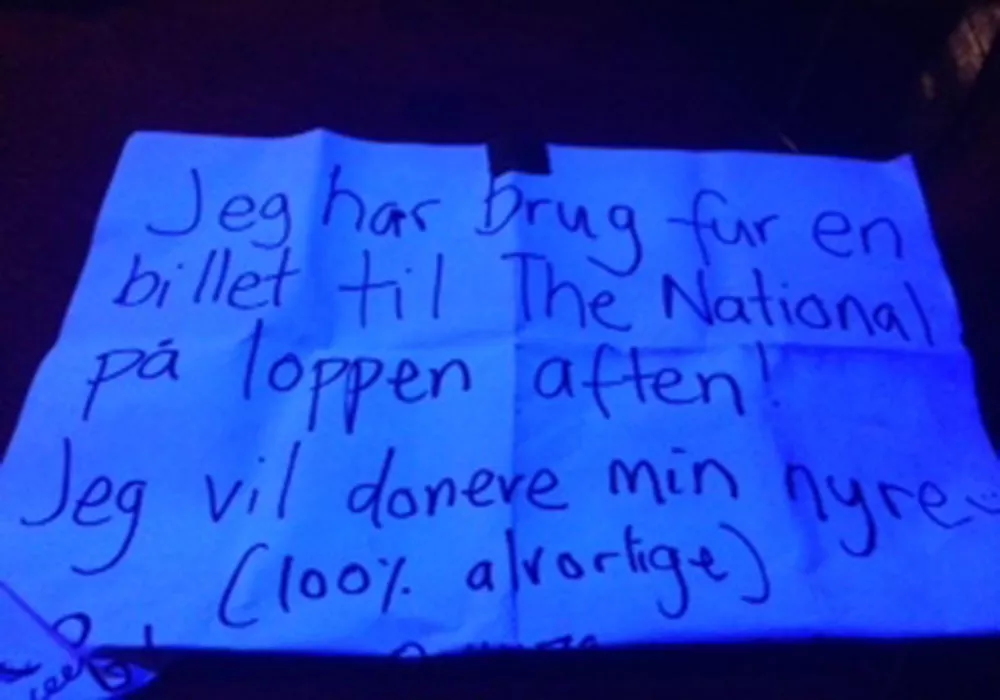 Jeg har brug fur en
billet til The National
på loppen aften!
Jeg vil donere min nyre
(100% alvortige)